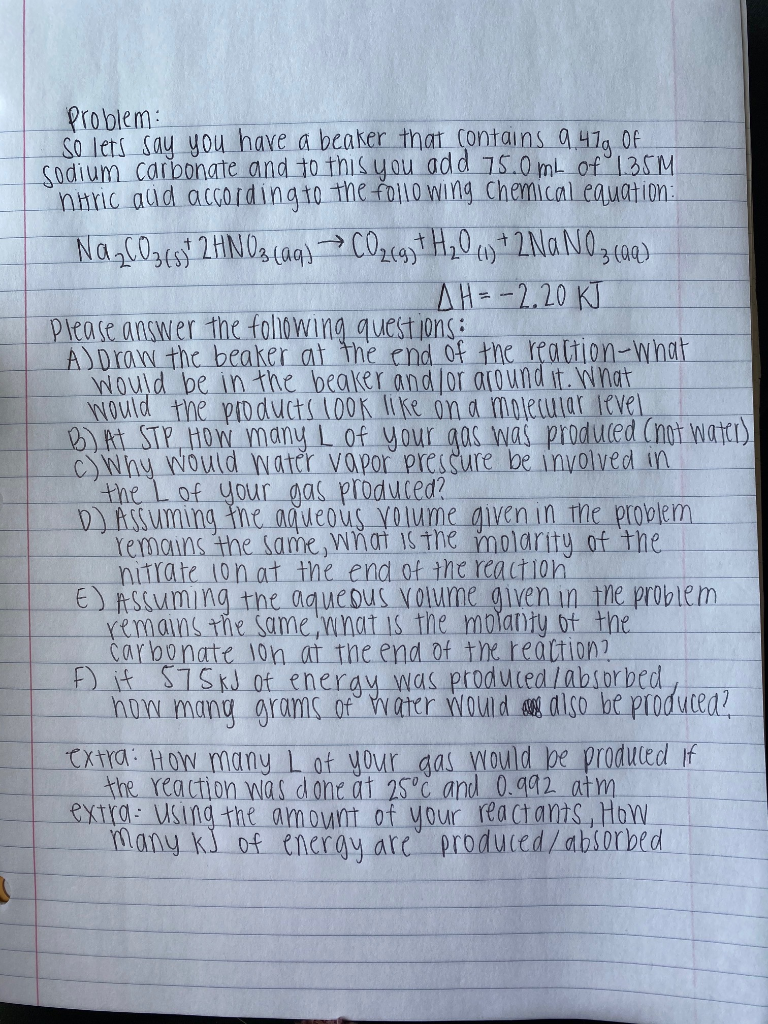 Problem:
So lets say you have a beaker that contains 9.47g of
sodium carbonate and to this you add 75.0 mL of 1.35M
nitric acid according to the following chemical equation:
Na₂CO₃(s) + 2HNO₃(aq) → CO₂(g) + H₂O(l) + 2NaNO₃(aq)
ΔH = -2.20 KJ
Please answer the following questions:
A) Draw the beaker at the end of the reaction-what
would be in the beaker and/or around it. What
would the products look like on a molecular level
B) At STP, How many L of your gas was produced (not water)
C) Why would water vapor pressure be involved in
the L of your gas produced?
D) Assuming the aqueous volume given in the problem
remains the same, what is the molarity of the
nitrate ion at the end of the reaction
E) Assuming the aqueous volume given in the problem
remains the same, what is the molarity of the
carbonate ion at the end of the reaction?
F) if 575kJ of energy was produced/absorbed,
how many grams of water would also be produced?
extra: How many L of your gas would be produced if
the reaction was done at 25°C and 0.992 atm
extra: Using the amount of your reactants, How
many kJ of energy are produced/absorbed